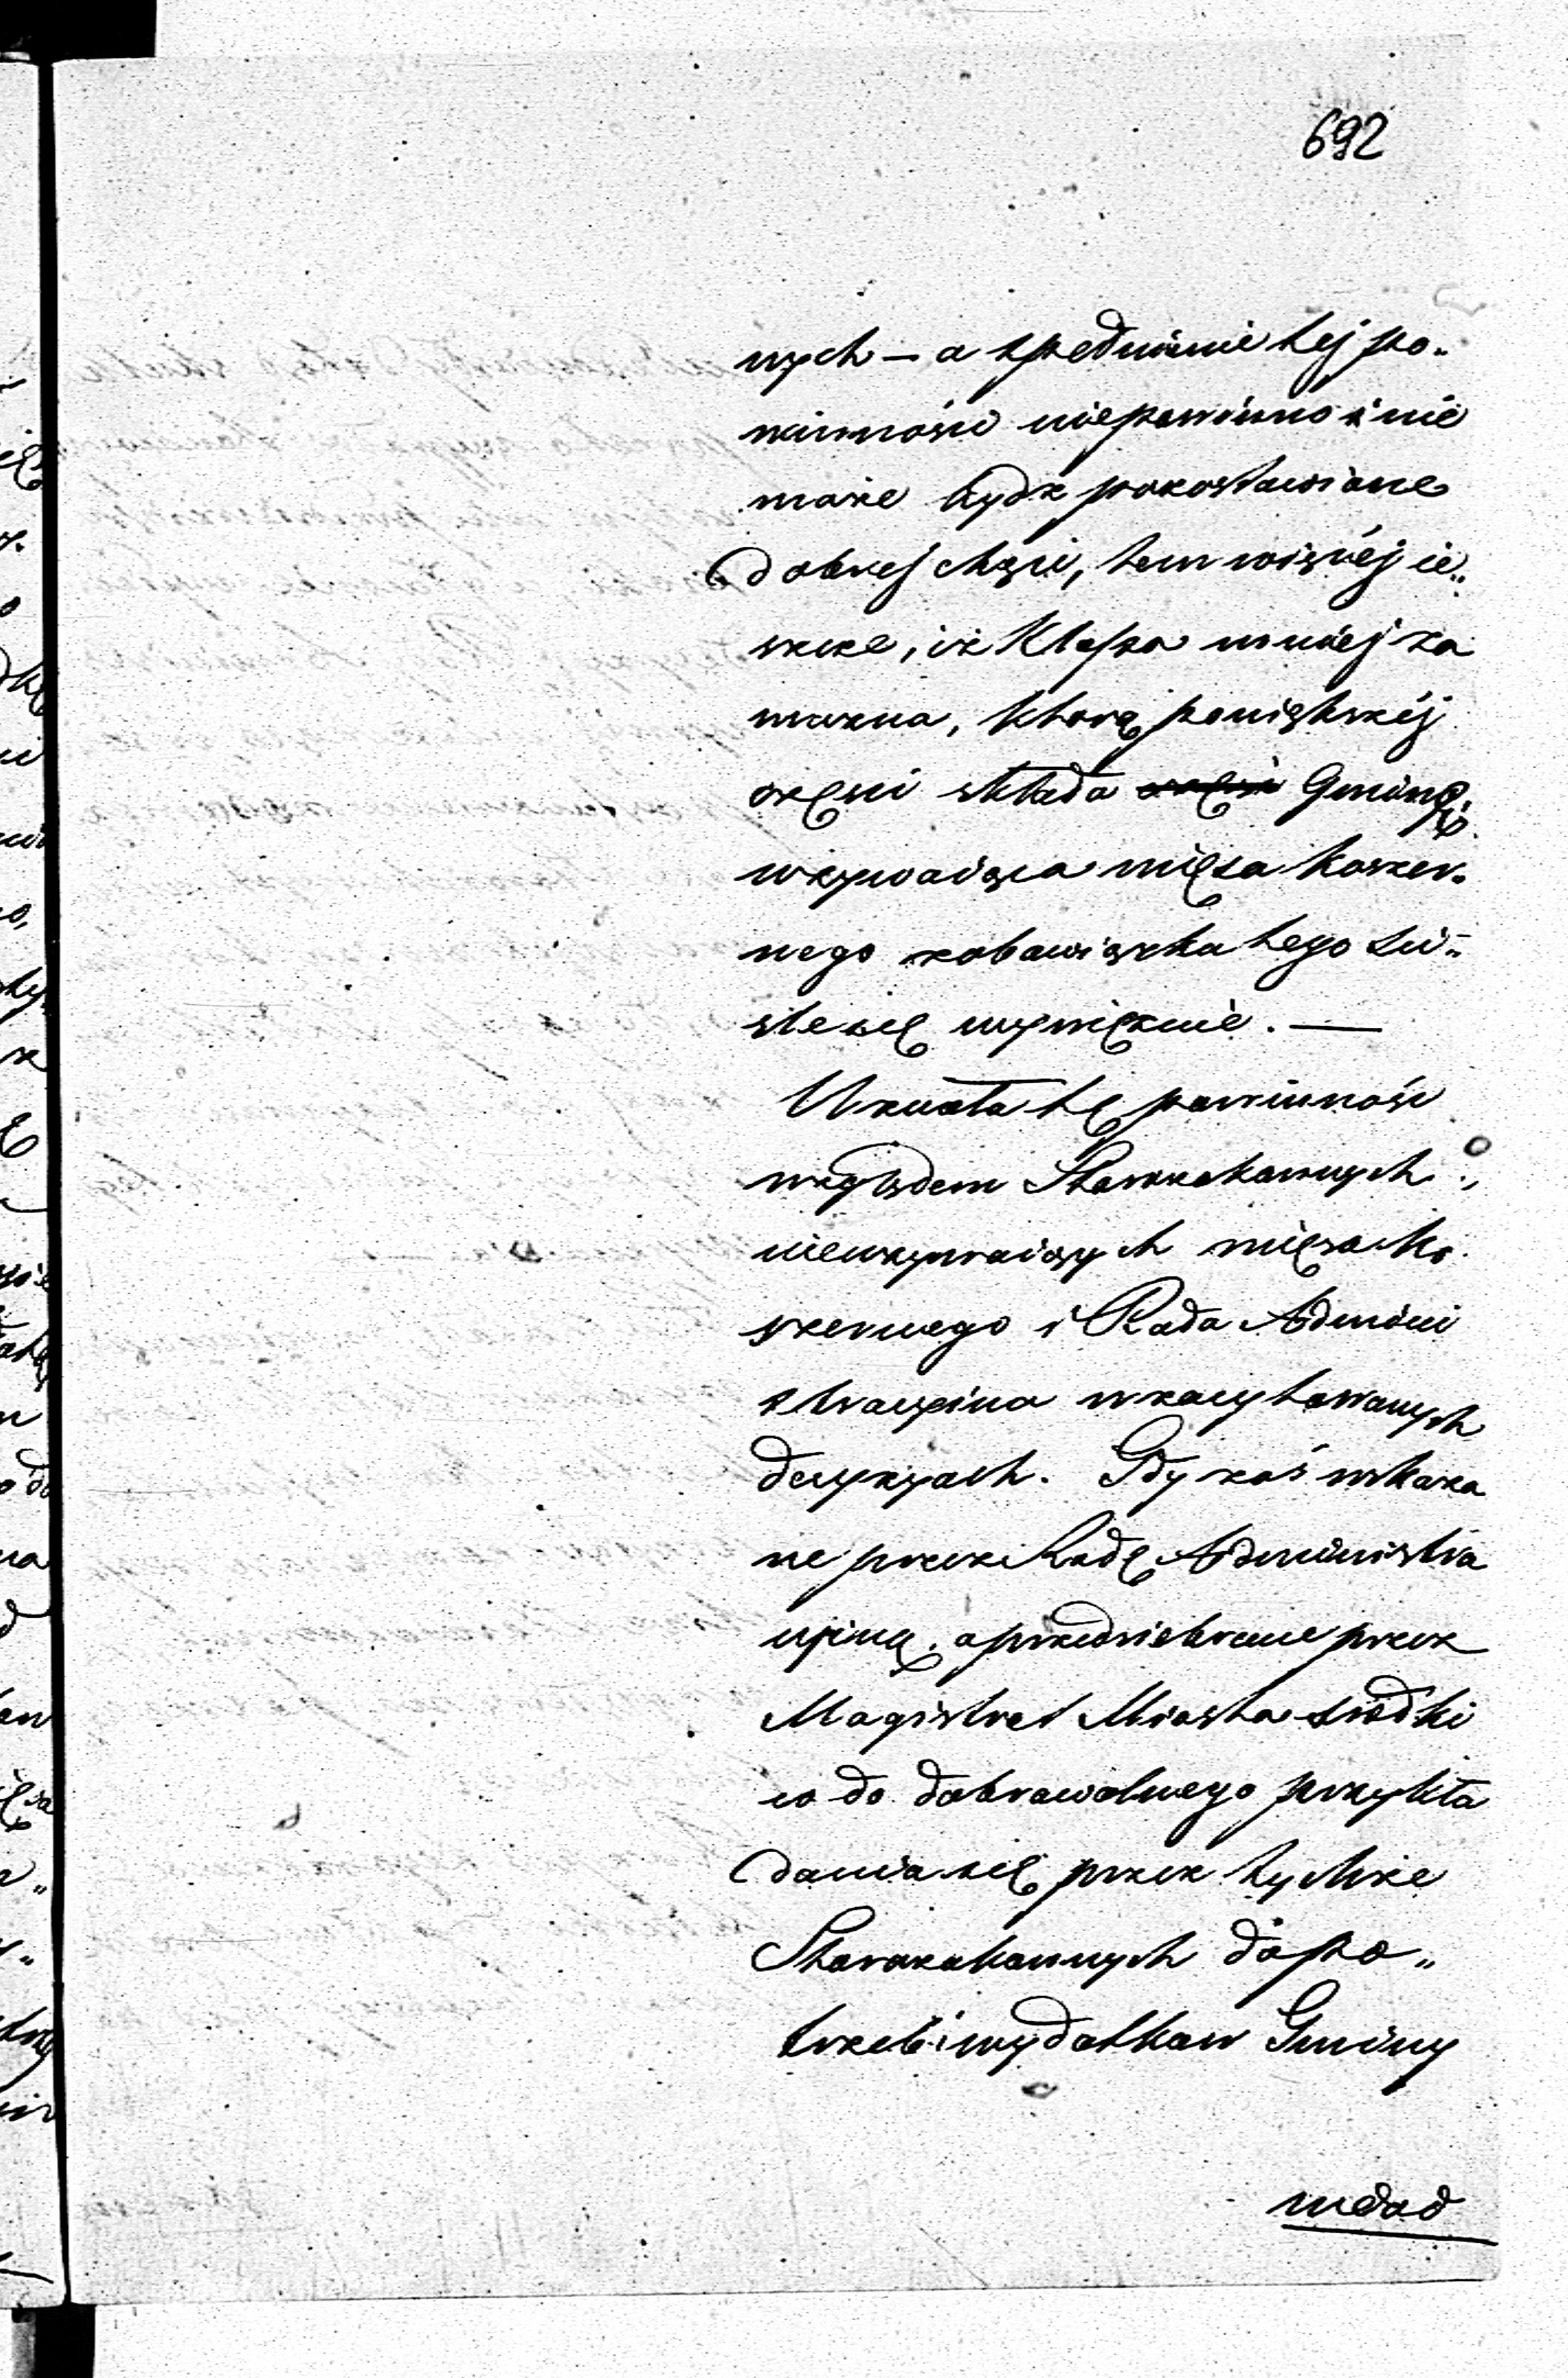 692
nych – a spełnienie tej po„
winności niepowinno i nie
może bydź pozostawione
dobrej chęci, tem więcéj ie„
szcze, iż Klassa mniej za
można, którą powiększéj
części składa części Gminę,
używaiąca mięsa koszer„
nego z obowiązku tego ści„
śle się wywięznie. —
Uznała tę powinność
względem Starozakonnych,
nieużywaiących mięsa ko
szernego i Rada Admini
stracyina w zacytowanych
decyzyach. Gdy zaś wskaza
ne przez Radę Administra
cyiną, a przedsiebrane przez
Magistrat Miasta środki
co do dobrowolnego przykła
dania się przez tychże
Starozakonnych do po„
trzeb i wydatków Gminy
niedod